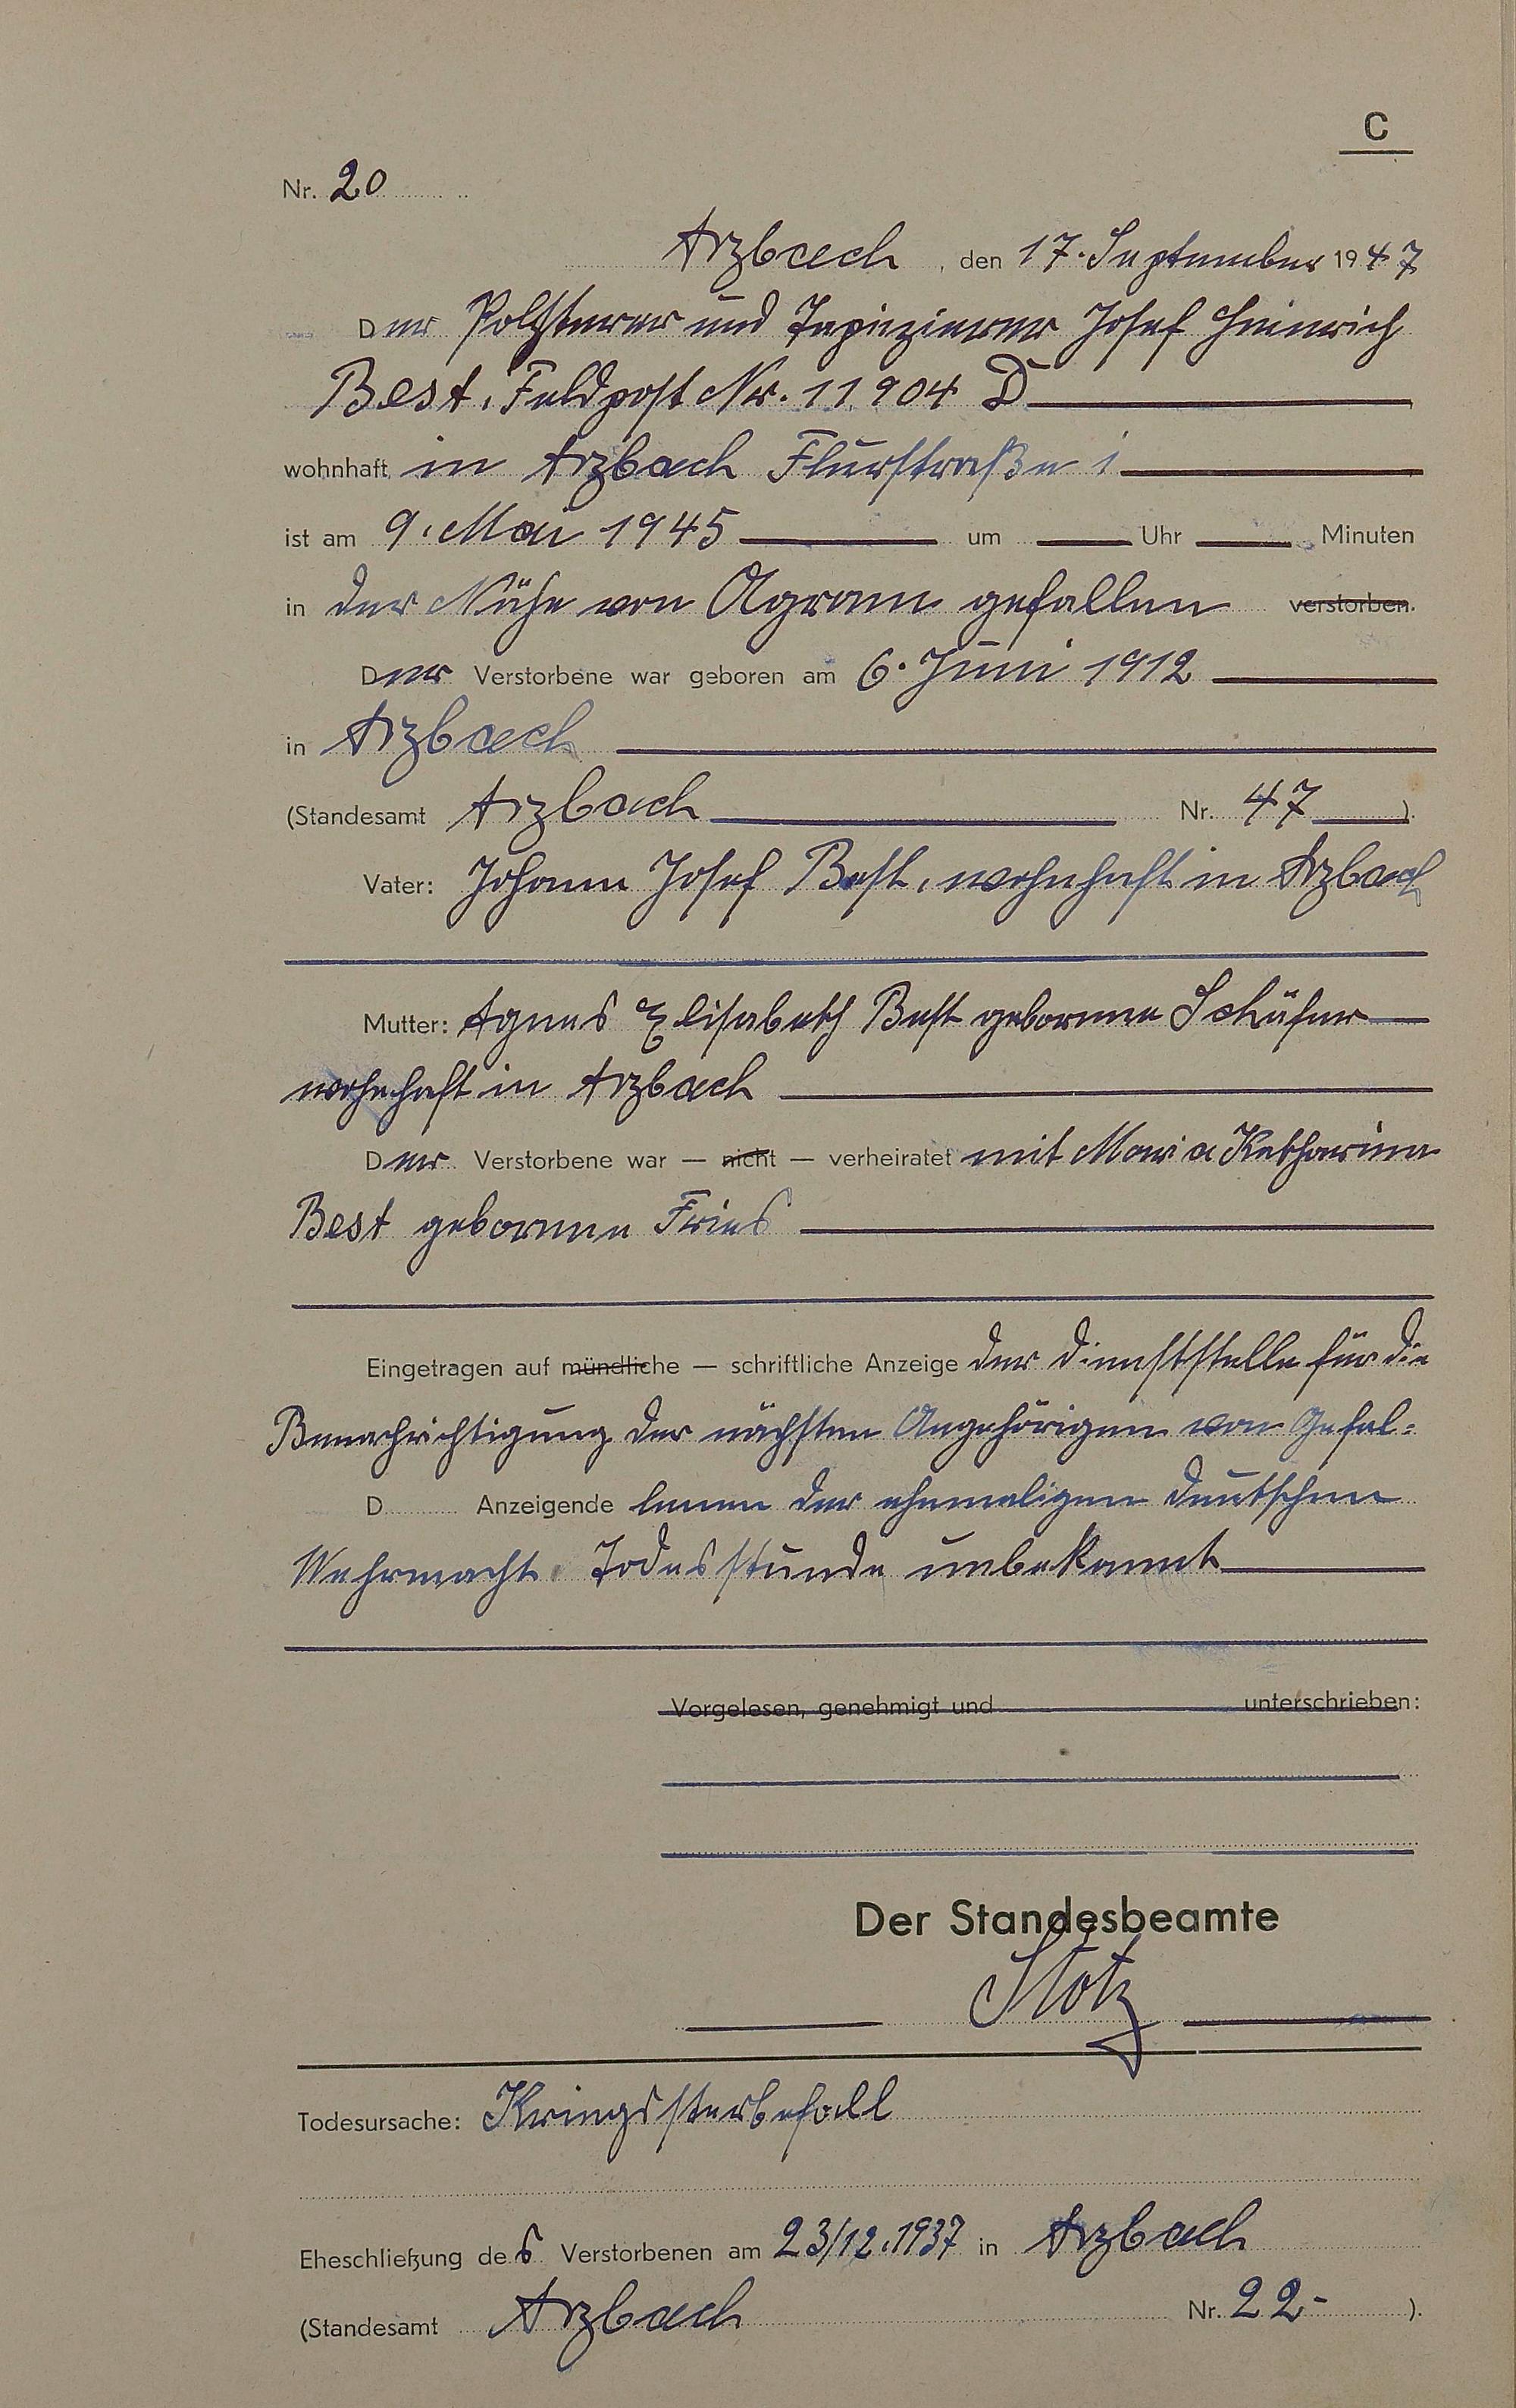 C
Nr. 20
Arzbach, den 17. September 1947
Der Polsterer und Tapezierer Josef Heinrich
Best, Feldpost Nr. 11904 D
wohnhaft in Arzbach Flurstraße 1
ist am 9. Mai 1945 um Uhr Minuten
in der Nähe von Agram gefallen verstorben.
Der Verstorbene war geboren am 6. Juni 1912
in Arzbach
(Standesamt Arzbach Nr. 47 ).
Vater: Johann Josef Best, wohnhaft in Arzbach
Mutter: Agnes Elisabeth Best geborene Schäfer
wohnhaft in Arzbach
Der Verstorbene war — nicht — verheiratet mit Maria Katharina
Best geborene Fries
Eingetragen auf mündliche — schriftliche Anzeige der Dienststelle für die
Benachrichtigung der nächsten Angehörigen von Gefal=
D Anzeigende lenen der ehemaligen deutschen
Wehrmacht. Todesstunde unbekannt
Vorgelesen, genehmigt und unterschrieben:
Der Standesbeamte
Stotz
Todesursache: Kriegssterbefall
Eheschließung des Verstorbenen am 23/12.1937 in Arzbach
(Standesamt Arzbach Nr. 22- ).